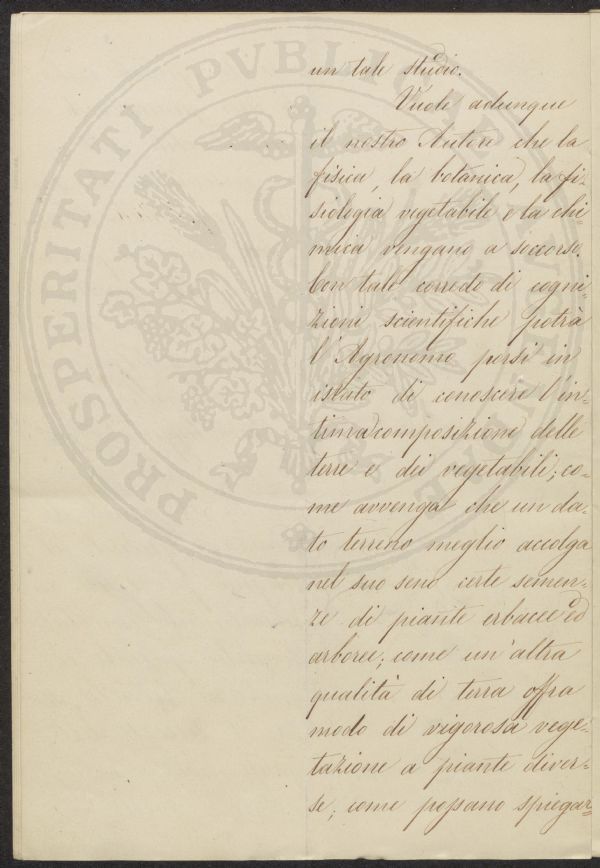 un tale studio.
Vuole adunque
il nostro Autore che la
fisica, la botanica, la fi-
siologia vegetabile e la chi=
mica vengano a soccorso.
Con tale corredo di cogni=
zioni scientifiche potrà
l'Agronomo porsi in
istato di conoscere l'in=
tima composizione delle
terre e dei vegetabili; co-
me avvenga che un da-
to terreno meglio accolga
nel suo seno certe semen-
ze di piante erbacee ed
arboree; come un'altra
qualità di terra offra
modo di vigorosa vege-
tazione a piante diver-
se; come possano spiegar=
PROSPERITATI PVBLI